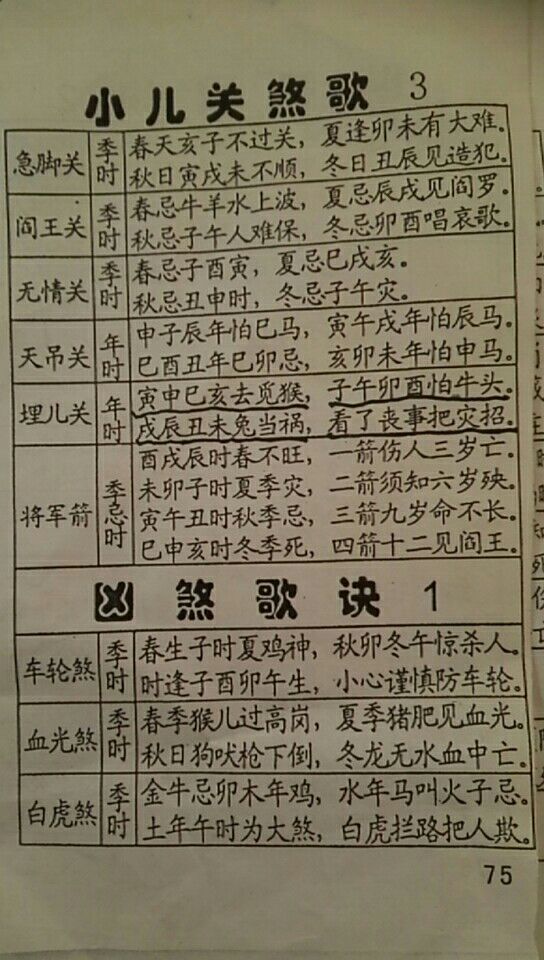 小儿关煞歌 3
急脚关 季时 春天亥子不过关，夏逢卯未有大难。
秋日寅戌未不顺，冬日丑辰见造犯。
阎王关 季时 春忌牛羊水上波，夏忌辰戌见阎罗。
秋忌子午人难保，冬忌卯酉唱哀歌。
无情关 季时 春忌子酉寅，夏忌巳戌亥。
秋忌丑申时，冬忌子午灾。
天吊关 年时 申子辰年怕巳马，寅午戌年怕辰马。
巳酉丑年巳卯忌，亥卯未年怕申马。
埋儿关 年时 寅申巳亥去觅猴，子午卯酉怕牛头。
戌辰丑未兔当祸，看了丧事把灾招。
将军箭 季忌时 酉戌辰时春不旺，一箭伤人三岁亡。
未卯子时夏季灾，二箭须知六岁殃。
寅午丑时秋季忌，三箭九岁命不长。
巳申亥时冬季死，四箭十二见阎王。
凶煞歌诀 1
车轮煞 季时 春生子时夏鸡神，秋卯冬午惊杀人。
时逢子酉卯午生，小心谨慎防车轮。
血光煞 季时 春季猴儿过高岗，夏季猪肥见血光。
秋日狗吠枪下倒，冬龙无水血中亡。
白虎煞 季时 金牛忌卯木年鸡，水年马叫火子忌。
土年午时为大煞，白虎拦路把人欺。
75